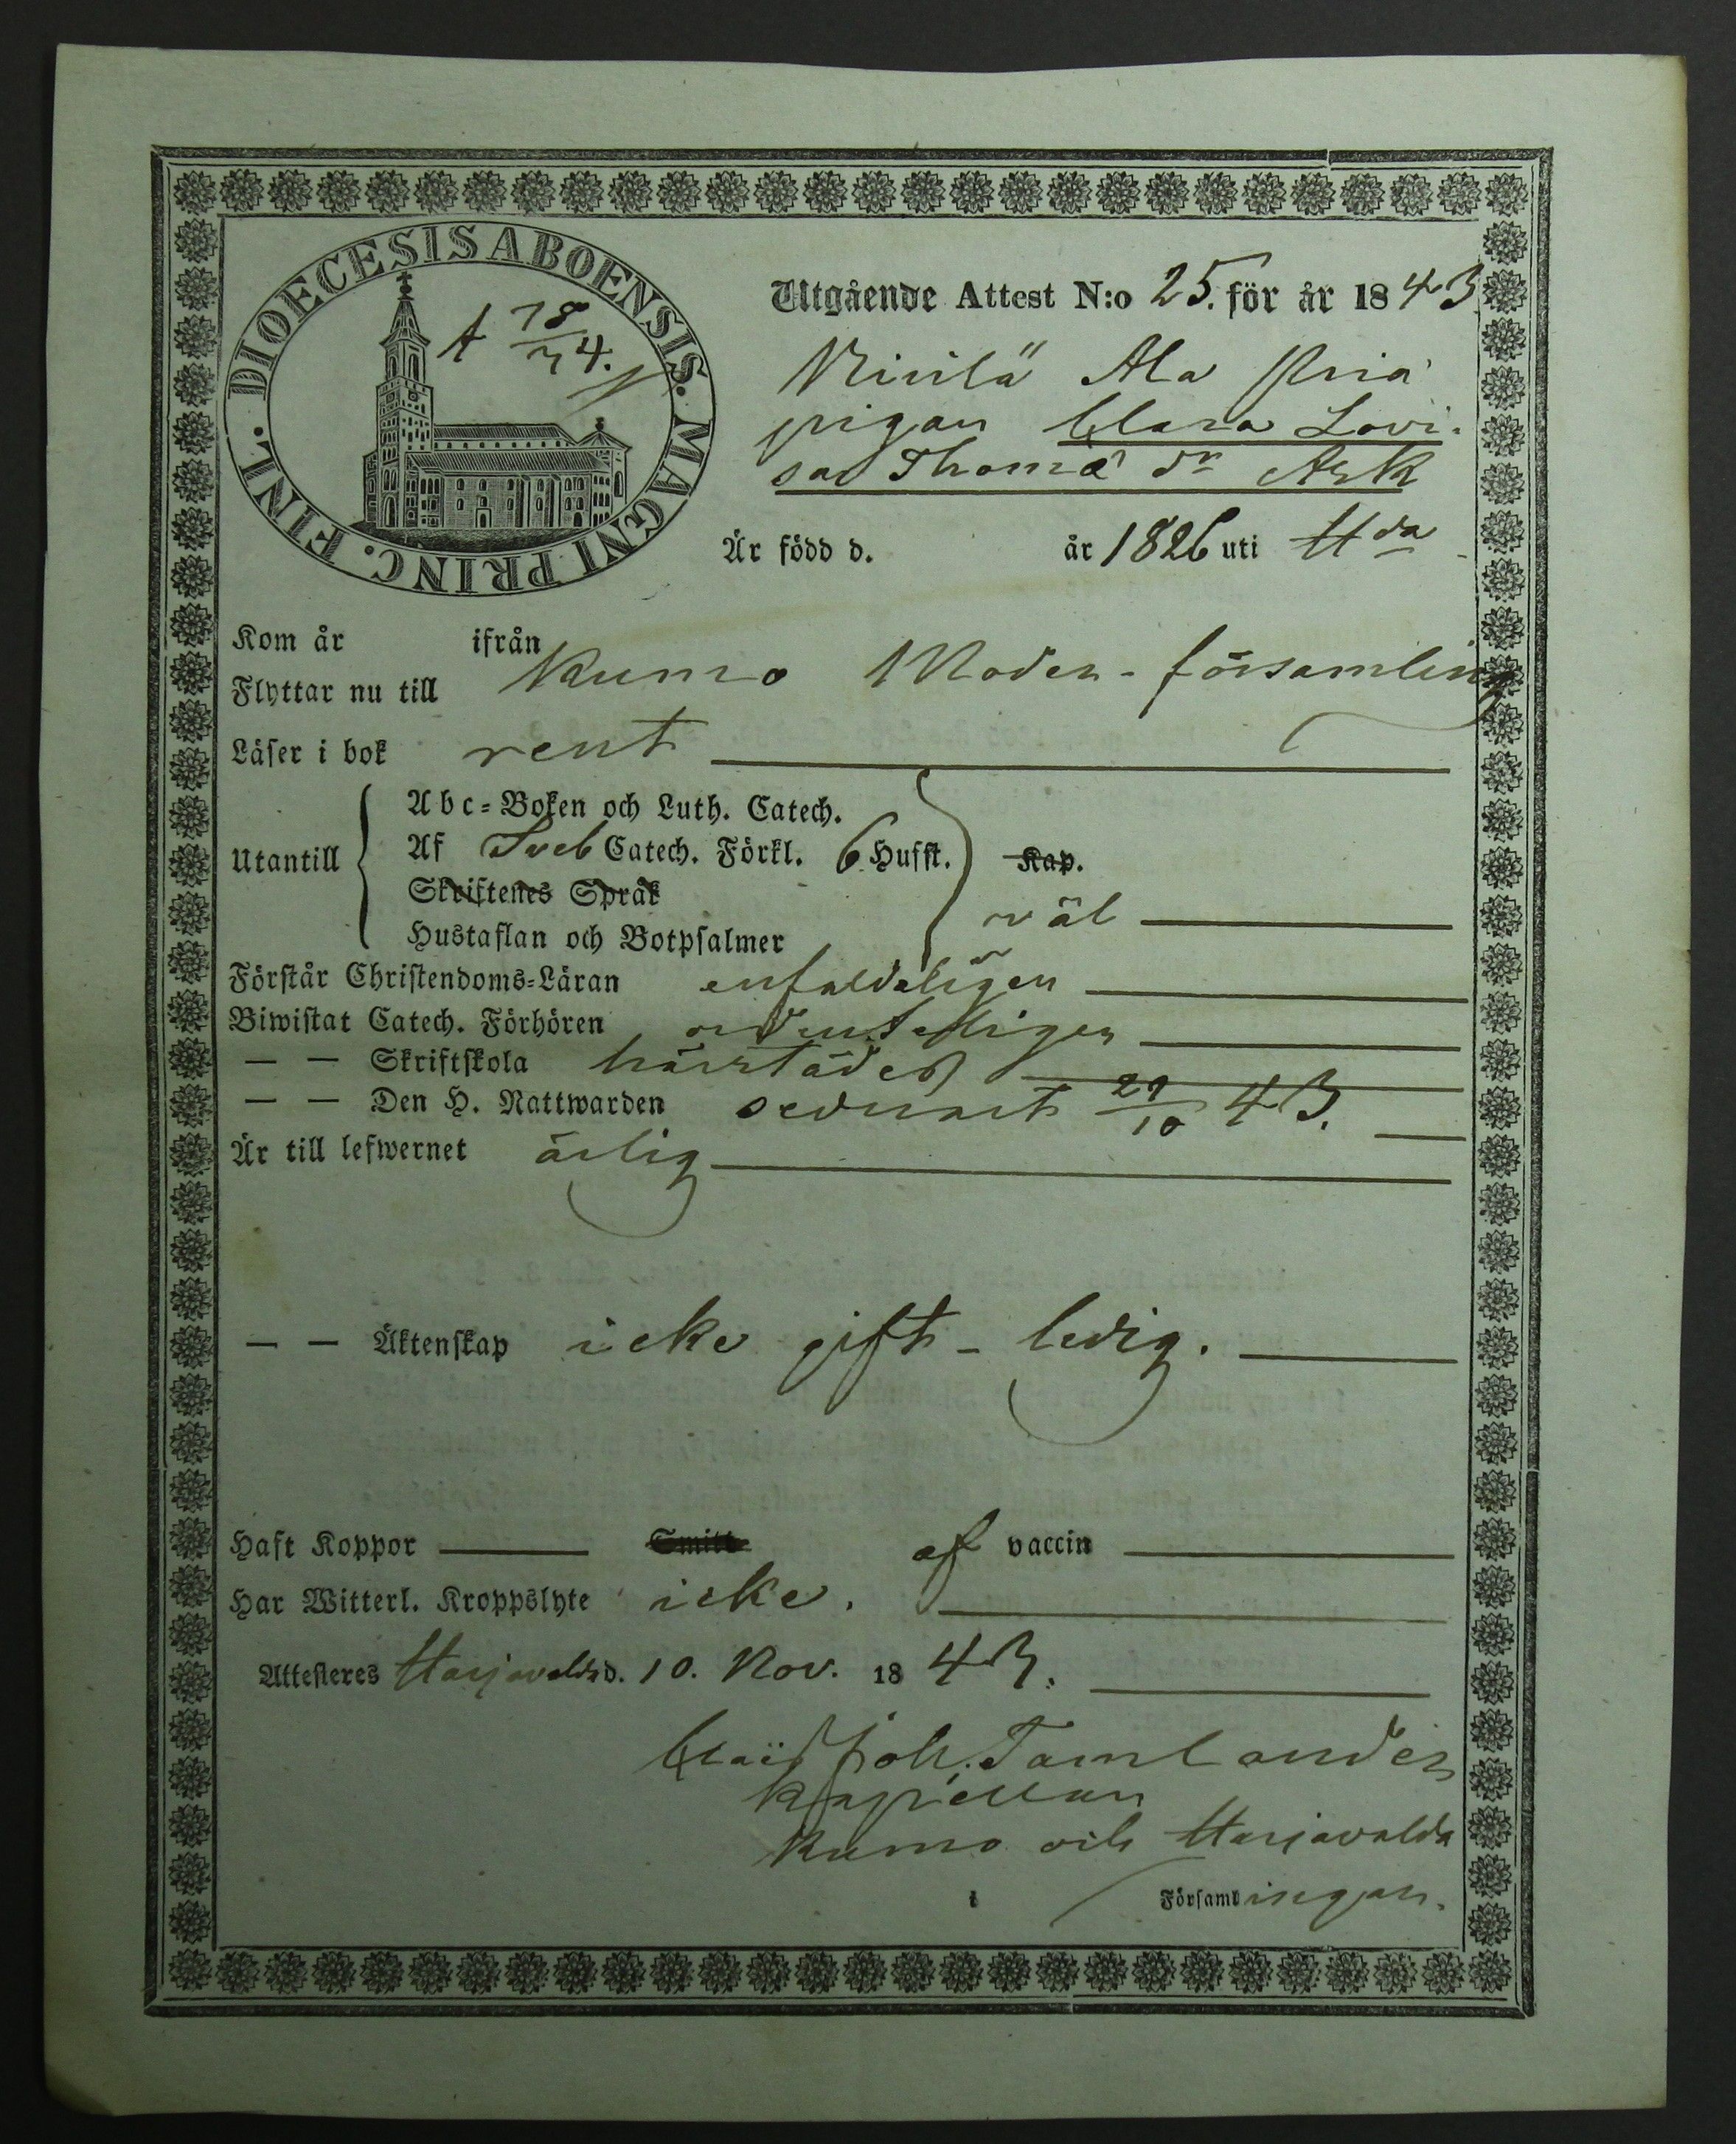 DIOECESIS ABOENSIS. MAGNI PRINC. FINL.
A 78
74.
Utgående Attest N:o 25. för år 1843
Ala
pigan Clara Lovi-
sa Thomæ dr Ask
Är född d. år 1826 uti Hda
Kom år ifrån
Flyttar nu till Kumo Moder-församling
Läser i bok rent
Utantill
Abc-Boken och Luth. Catech.
Af Sveb Catech. Förkl. 6 Hufst. Kap.
Skriftenes Språk
Hustaflan och Botpsalmer
väl
Förstår Christendoms-Läran enfaldeligen
Biwistat Catech. Förhören ordenteligen
— — Skriftskola härstädes
— — Den H. Nattwarden sednast 29/10 43.
Är till lefwernet ärlig
— — Äktenskap icke gift - ledig.
Haft Koppor Smitt af vaccin
Har Witterl. Kroppslyte icke.
Attesteres Harjavalda d. 10. Nov. 1843.
Joh. Tamlander
Kapellan
Kumo och Harjavalda
i Församlingar.